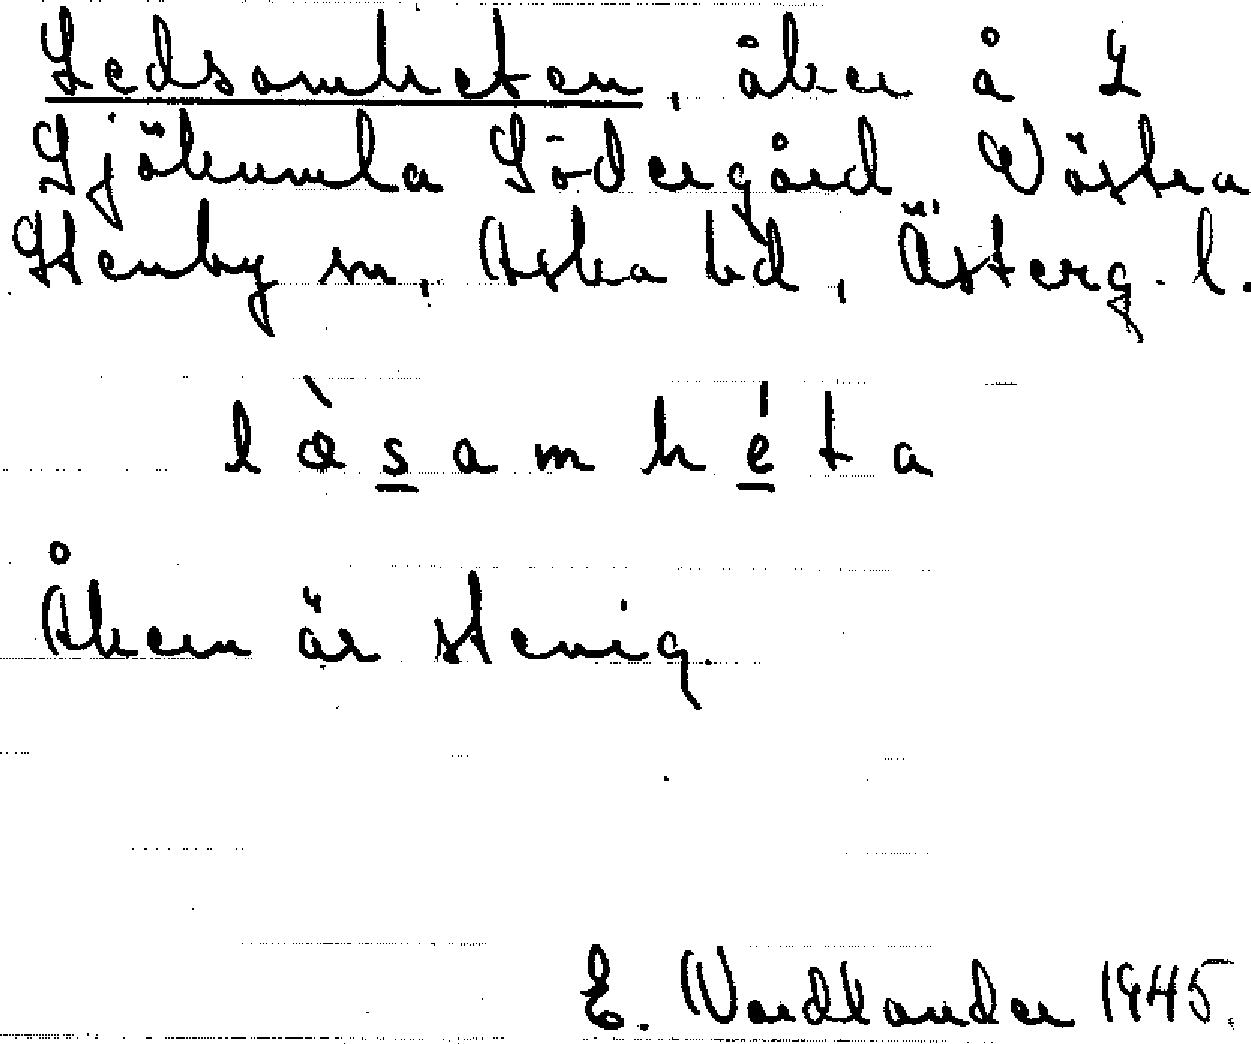 Ledsamheten, åker å 2
Sjökumla Södergård, Västra
Stenby sn, Aska hd, Österg. l.
lòsamhéta
Åkern är stenig.
E. Nordlander 1945.